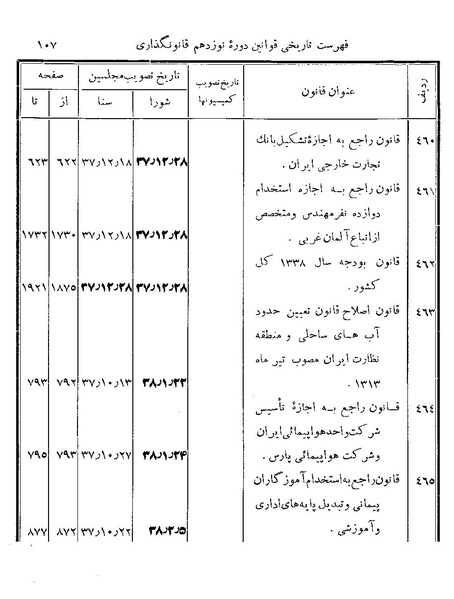 فهرست تاریخی قوانین دورهٔ نوزدهم قانونگذاری ۱۰۷
ردیف عنوان قانون تاریخ تصویب کمیسیونها تاریخ تصویب مجلسین صفحه
شورا سنا از تا
۴۶۰ قانون راجع به اجازهٔ تشکیل بانک
تجارت خارجی ایران . ۳۷٫۱۲٫۲۸ ۳۷٫۱۲٫۱۸ ۶۲۲ ۶۲۳
۴۶۱ قانون راجع بـه اجازه استخدام
دوازده نفر مهندس ومتخصص
از اتباع آلمان غربی . ۳۷٫۱۲٫۲۸ ۳۷٫۱۲٫۱۸ ۱۷۳۰ ۱۷۳۲
۴۶۲ قانون بودجه سال ۱۳۳۸ کل
کشور . ۳۷٫۱۲٫۲۸ ۳۷٫۱۲٫۲۸ ۱۸۷۵ ۱۹۲۱
۴۶۳ قانون اصلاح قانون تعیین حدود
آب هـای ساحلی و منطقه
نظارت ایران مصوب تیر ماه
۱۳۱۳ . ۳۸٫۱٫۲۲ ۳۷٫۱۰٫۱۳ ۷۹۲ ۷۹۳
۴۶۴ قـانون راجع بـه اجازهٔ تأسیس
شرکت واحد هواپیمائی ایران
و شرکت هواپیمائی پارس . ۳۸٫۱٫۲۴ ۳۷٫۱۰٫۲۷ ۷۹۳ ۷۹۵
۴۶۵ قانون راجع به استخدام آموزگاران
پیمانی و تبدیل پایه‌های اداری
و آموزشی . ۳۸٫۲٫۵ ۳۷٫۱۰٫۲۲ ۸۷۲ ۸۷۷